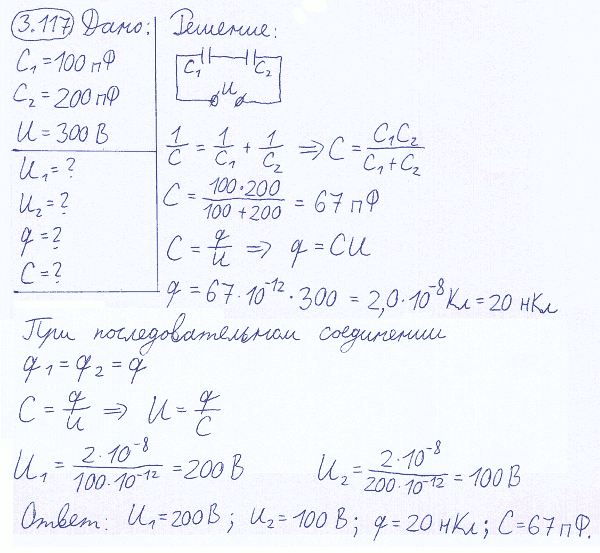 3.117 Дано: Решение:
C₁ = 100 пФ
C₂ = 200 пФ
U = 300 В
U₁ = ?
U₂ = ?
q = ?
C = ?
C₁ C₂
U
1/C = 1/C₁ + 1/C₂ ⇒ C = C₁C₂/(C₁ + C₂)
C = (100·200)/(100 + 200) = 67 пФ
C = q/U ⇒ q = CU
q = 67·10⁻¹²·300 = 2,0·10⁻⁸ Кл = 20 нКл
При последовательном соединении
q₁ = q₂ = q
C = q/U ⇒ U = q/C
U₁ = (2·10⁻⁸)/(100·10⁻¹²) = 200 В U₂ = (2·10⁻⁸)/(200·10⁻¹²) = 100 В
Ответ: U₁ = 200 В; U₂ = 100 В; q = 20 нКл; C = 67 пФ.